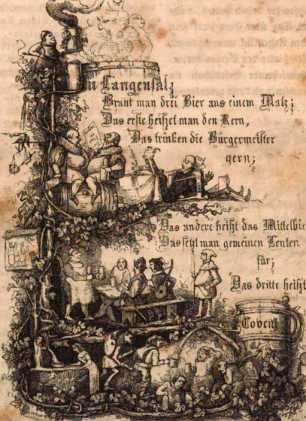 In Langensalz
Braut man drei Bier aus einem Malz;
Das erste heißet man den Kern,
Das trinken die Bürgermeister
gern;
Das andere heißt das Mittelbie
Das setzt man gemeinen Leuten
für;
Das dritte heißt
Covent